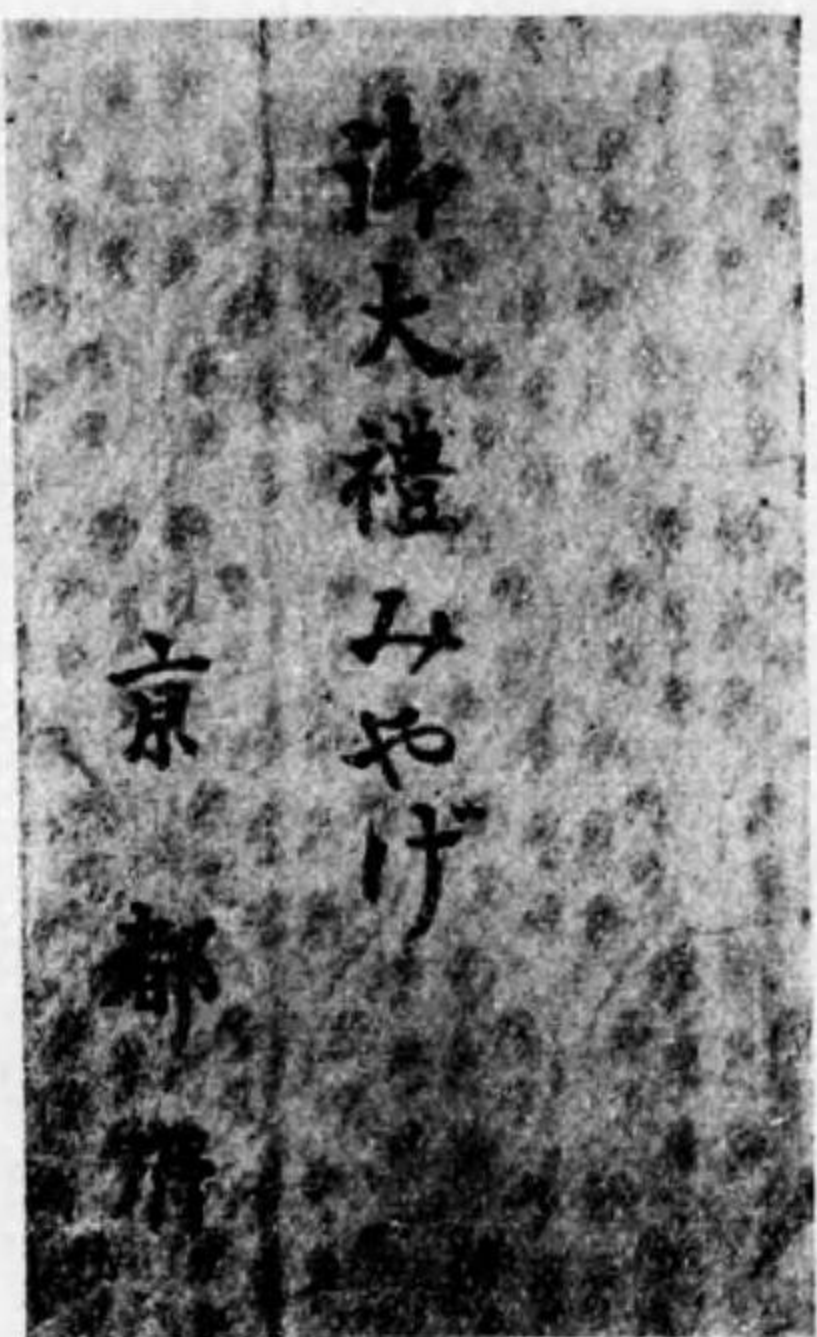 御大禮みやげ
京都